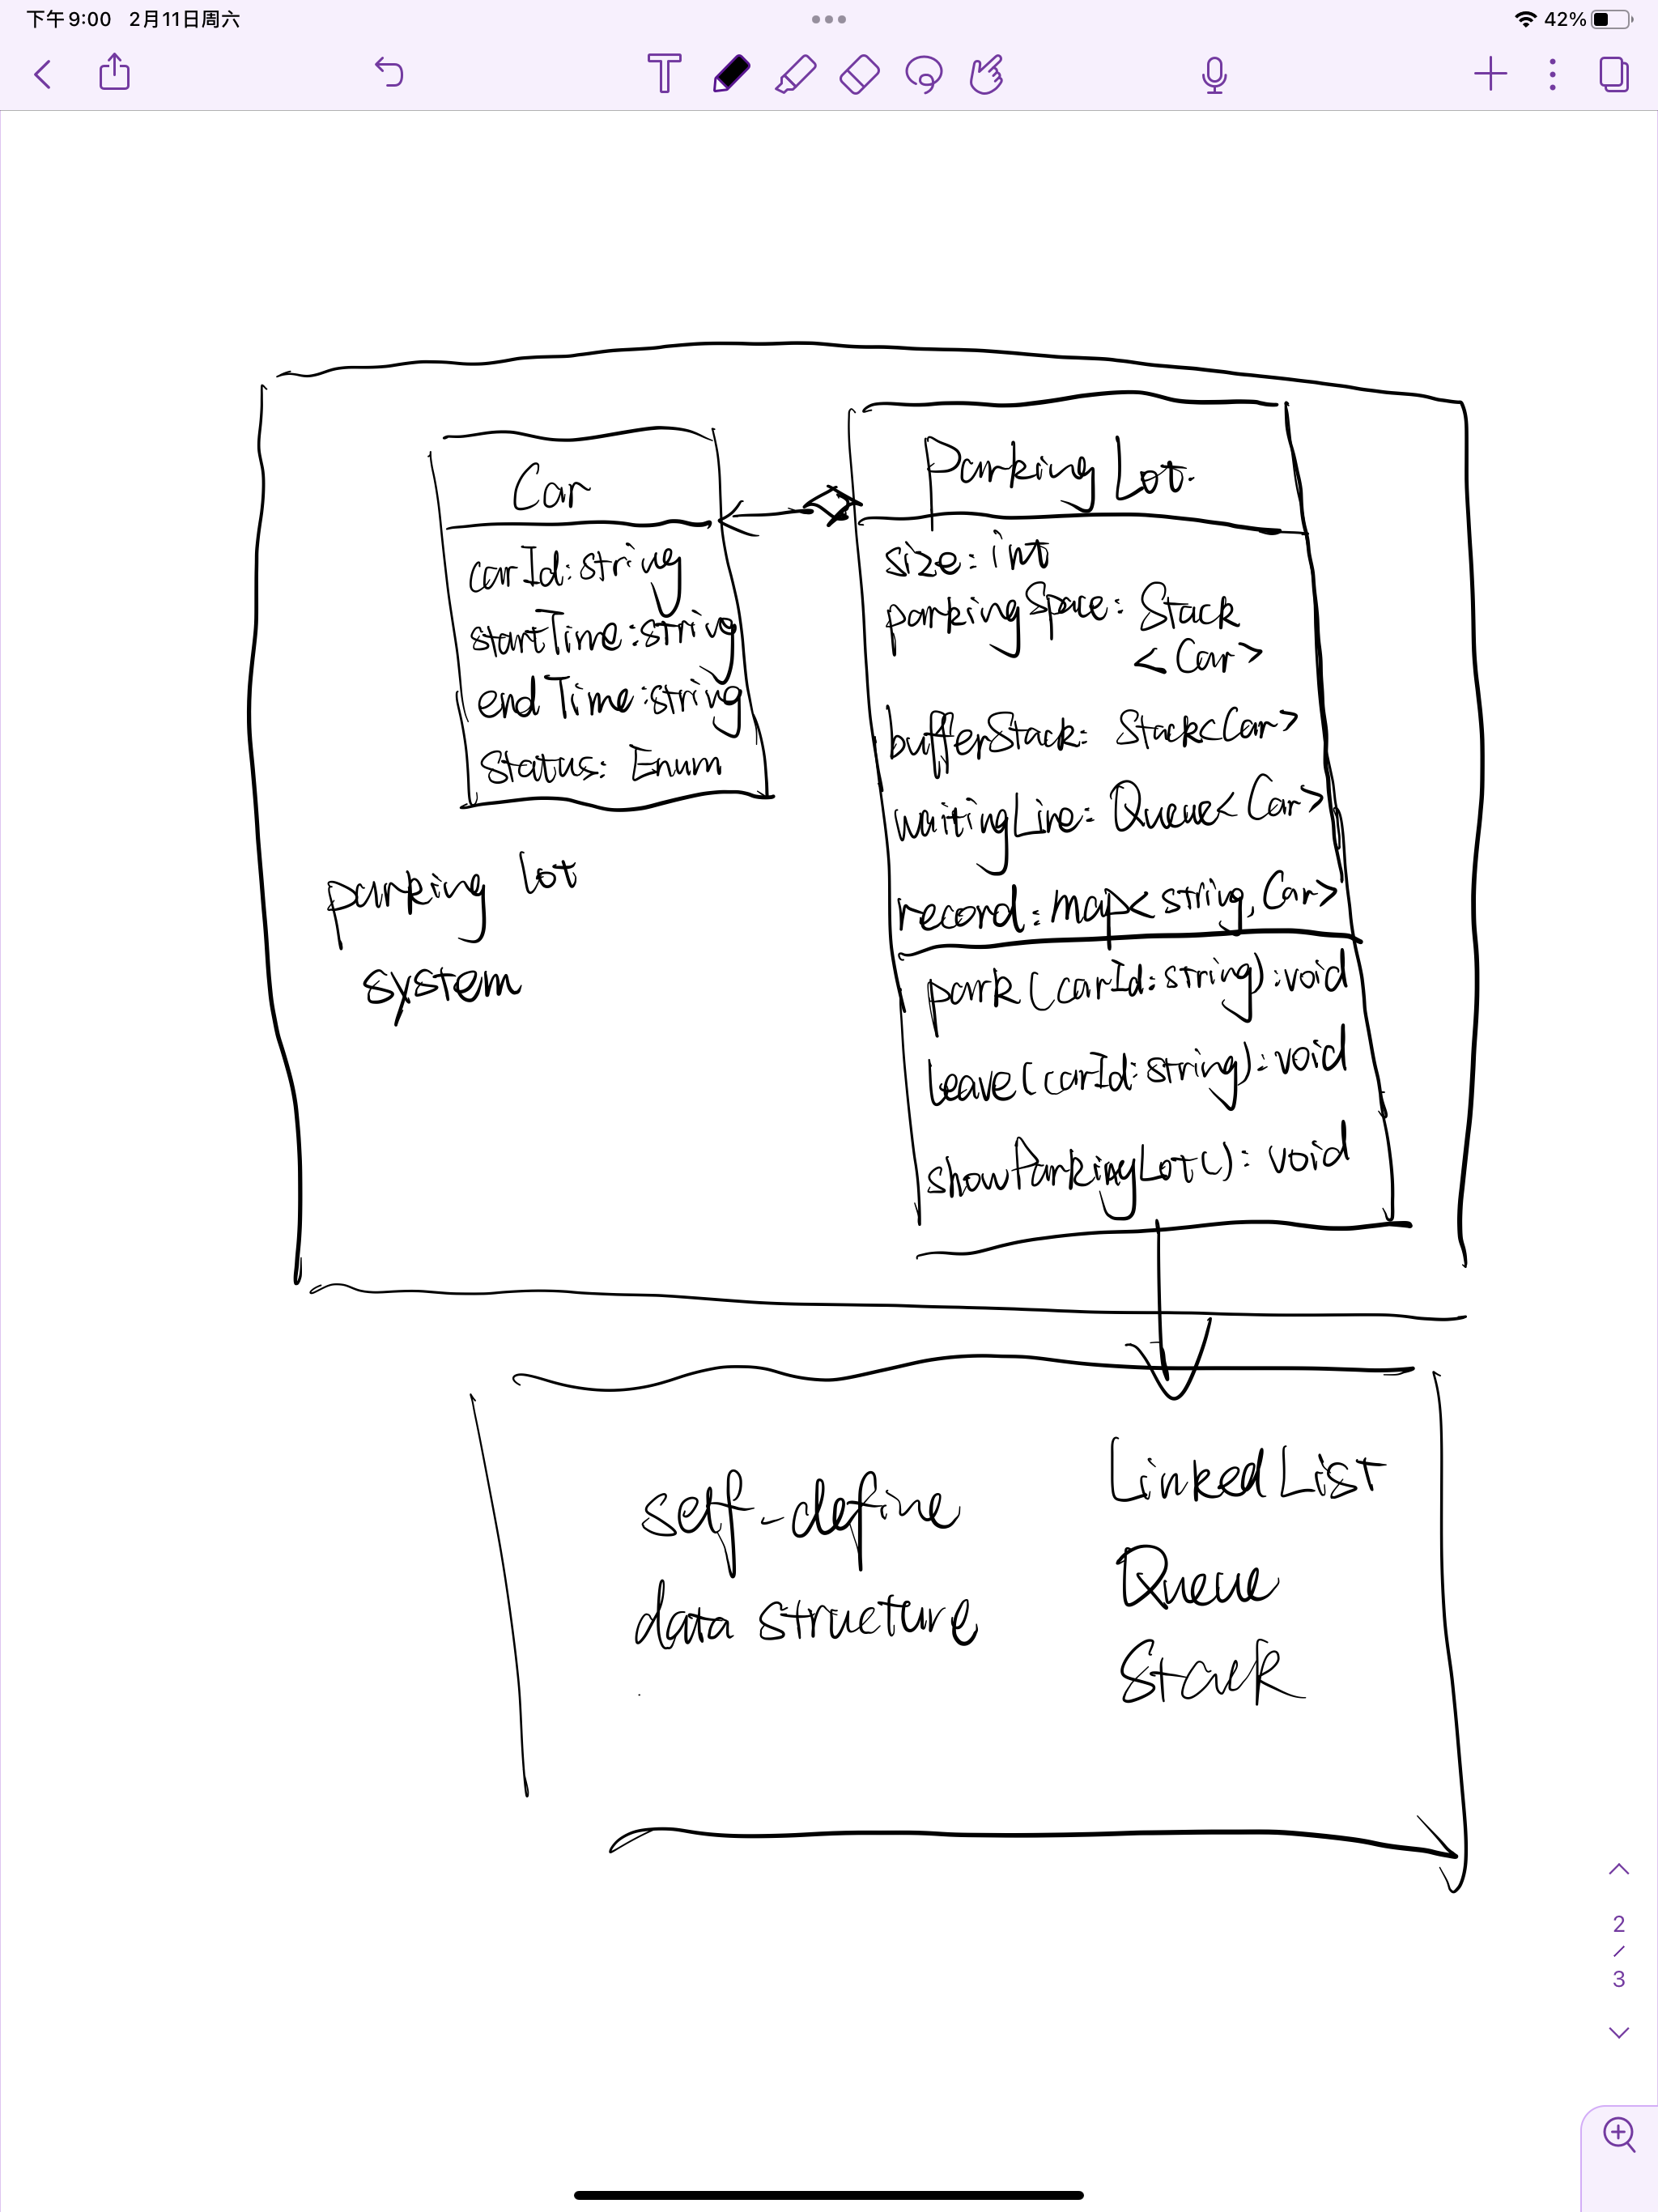 下午9:00 2月11日周六
42%
T
Car
carId:string
startTime:string
endTime:string
Status: Enum
parking lot
system
Parking Lot.
size: int
parkingSpace: Stack
<Car>
bufferStack: Stack<Car>
waitingLine: Queue<Car>
record: map<string, Car>
park(carId:string):void
leave(carId:string):void
showParkingLot(): void
self-define
data structure
Linked List
Queue
Stack
2
/
3